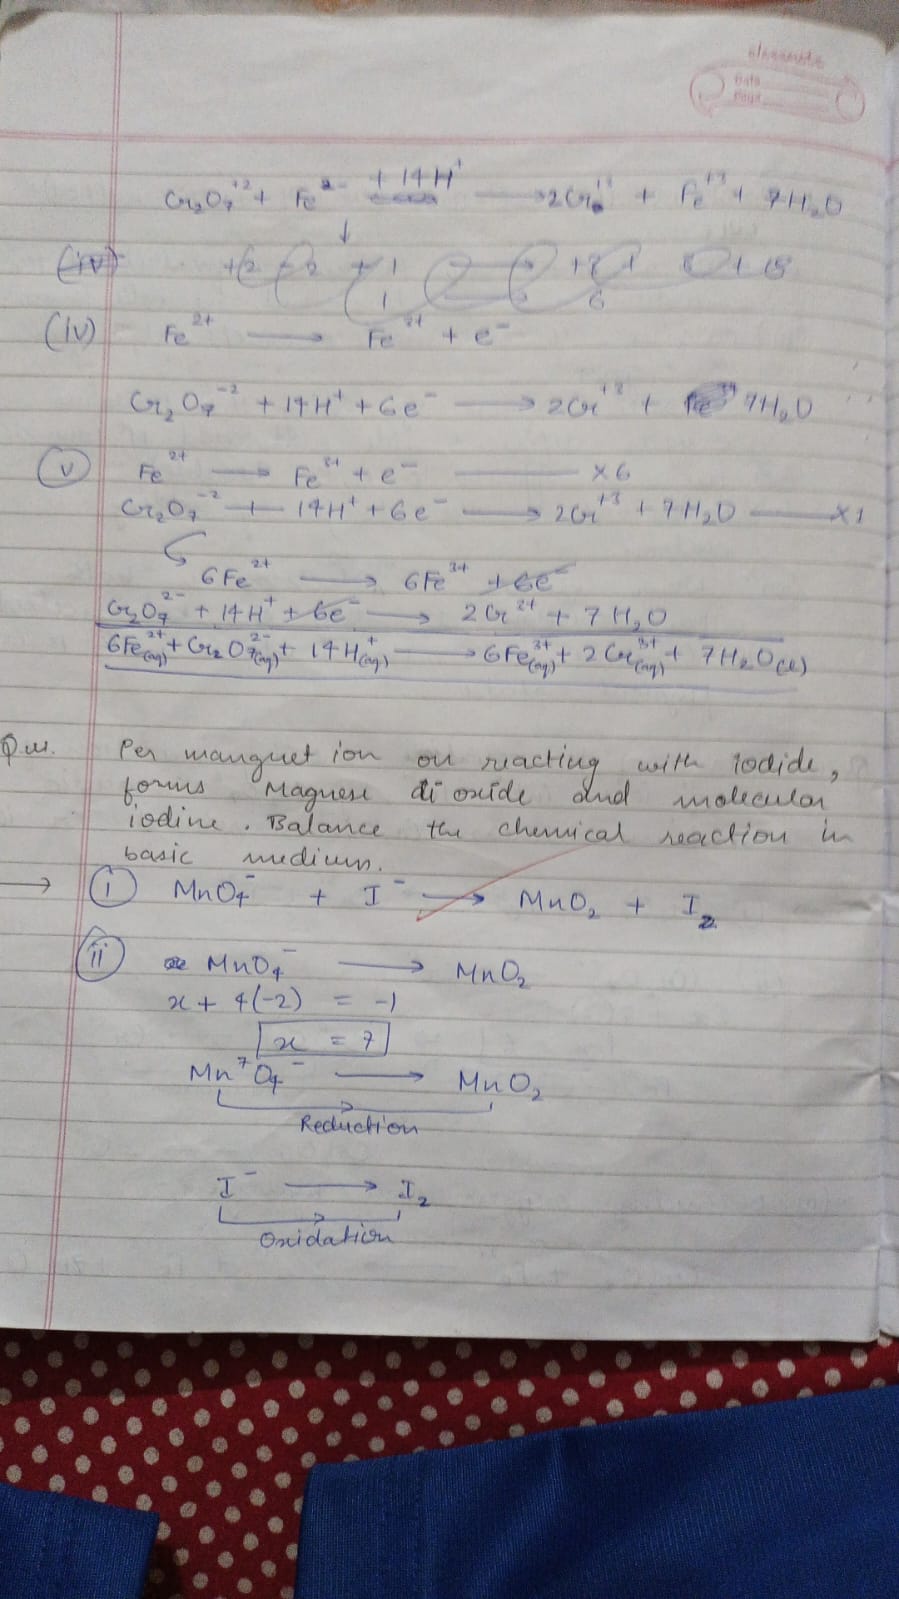 classmate
Date
Page
Cr₂O₇⁺² + Fe²⁻ + 14H⁺ → 2Cr + Fe + 7H₂O
(iv)
(iv) Fe²⁺ → Fe³⁺ + e⁻
Cr₂O₇⁻² + 14H⁺ + 6e⁻ → 2Cr⁺³ + 7H₂O
(v) Fe²⁺ → Fe³⁺ + e⁻ — ×6
Cr₂O₇⁻² + 14H⁺ + 6e⁻ → 2Cr⁺³ + 7H₂O — ×1
6Fe²⁺ → 6Fe³⁺ + 6e⁻
Cr₂O₇²⁻ + 14H⁺ + 6e⁻ → 2Cr³⁺ + 7H₂O
6Fe²⁺(aq) + Cr₂O₇²⁻(aq) + 14H⁺(aq) → 6Fe³⁺(aq) + 2Cr³⁺(aq) + 7H₂O(l)
Per manguet ion on reacting with iodide,
forms Magnese di oxide and molecular
iodine. Balance the chemical reaction in
basic medium.
→ (i) MnO₄⁻ + I⁻ → MnO₂ + I₂
(ii) MnO₄⁻ → MnO₂
x + 4(-2) = -1
x = 7
Mn⁷O₄⁻ → MnO₂
Reduction
I⁻ → I₂
Oxidation